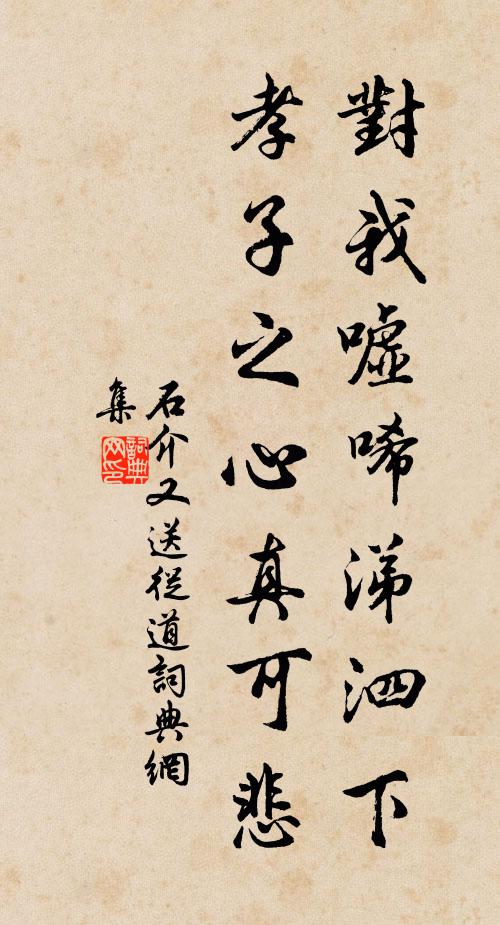 對我噓唏涕泗下
孝子之心真可悲
石介又送從道詞典網
集
詞典
网印